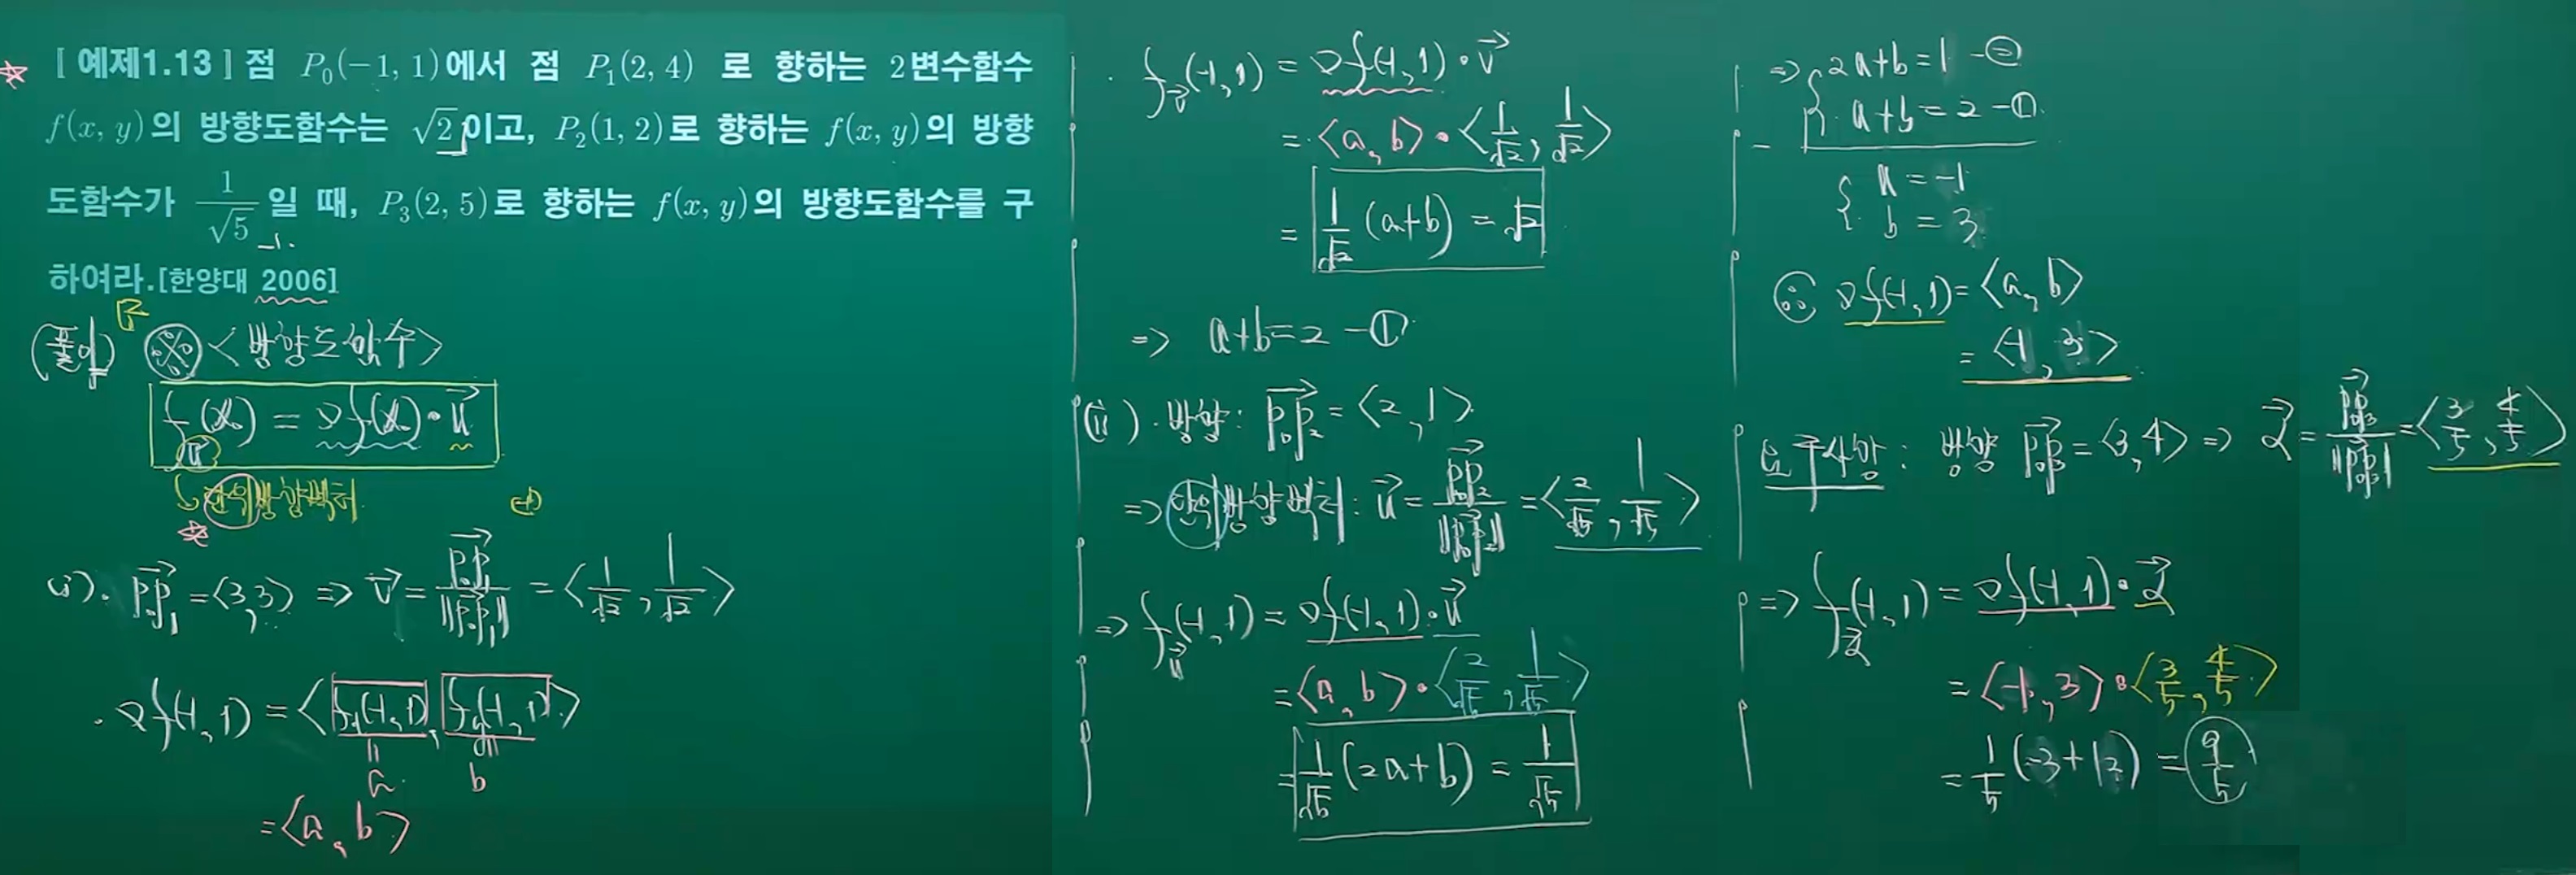 [예제1.13] 점 P₀(−1, 1)에서 점 P₁(2, 4) 로 향하는 2변수함수
f(x, y)의 방향도함수는 √2 이고, P₂(1, 2)로 향하는 f(x, y)의 방향
도함수가 1/√5 일 때, P₃(2, 5)로 향하는 f(x, y)의 방향도함수를 구
하여라.[한양대 2006]
(풀이) <방향도함수>
f_u⃗(x₀) = ∇f(x₀)·u⃗
단위방향벡터
(i). P₀P₁⃗ = <3, 3> => v⃗ = P₀P₁⃗/‖P₀P₁⃗‖ = <1/√2, 1/√2>
· ∇f(-1, 1) = <fₓ(-1, 1), f_y(-1, 1)>
a b
= <a, b>
· f_v⃗(-1, 1) = ∇f(-1, 1)·v⃗
= <a, b>·<1/√2, 1/√2>
= 1/√2 (a+b) = √2
=> a+b=2 -①
(ii). 방향: P₀P₂⃗ = <2, 1>
=> 단위방향벡터: u⃗ = P₀P₂⃗/‖P₀P₂⃗‖ = <2/√5, 1/√5>
=> f_u⃗(-1, 1) = ∇f(-1, 1)·u⃗
= <a, b>·<2/√5, 1/√5>
= 1/√5 (2a+b) = 1/√5
=> 2a+b=1 -②
a+b=2 -①
a = -1
b = 3
∇f(-1, 1) = <a, b>
= <-1, 3>
방향 P₀P₃⃗ = <3, 4> => α⃗ = P₀P₃⃗/‖P₀P₃⃗‖ = <3/5, 4/5>
=> f_α⃗(-1, 1) = ∇f(-1, 1)·α⃗
= <-1, 3>·<3/5, 4/5>
= 1/5 (-3+12) = 9/5